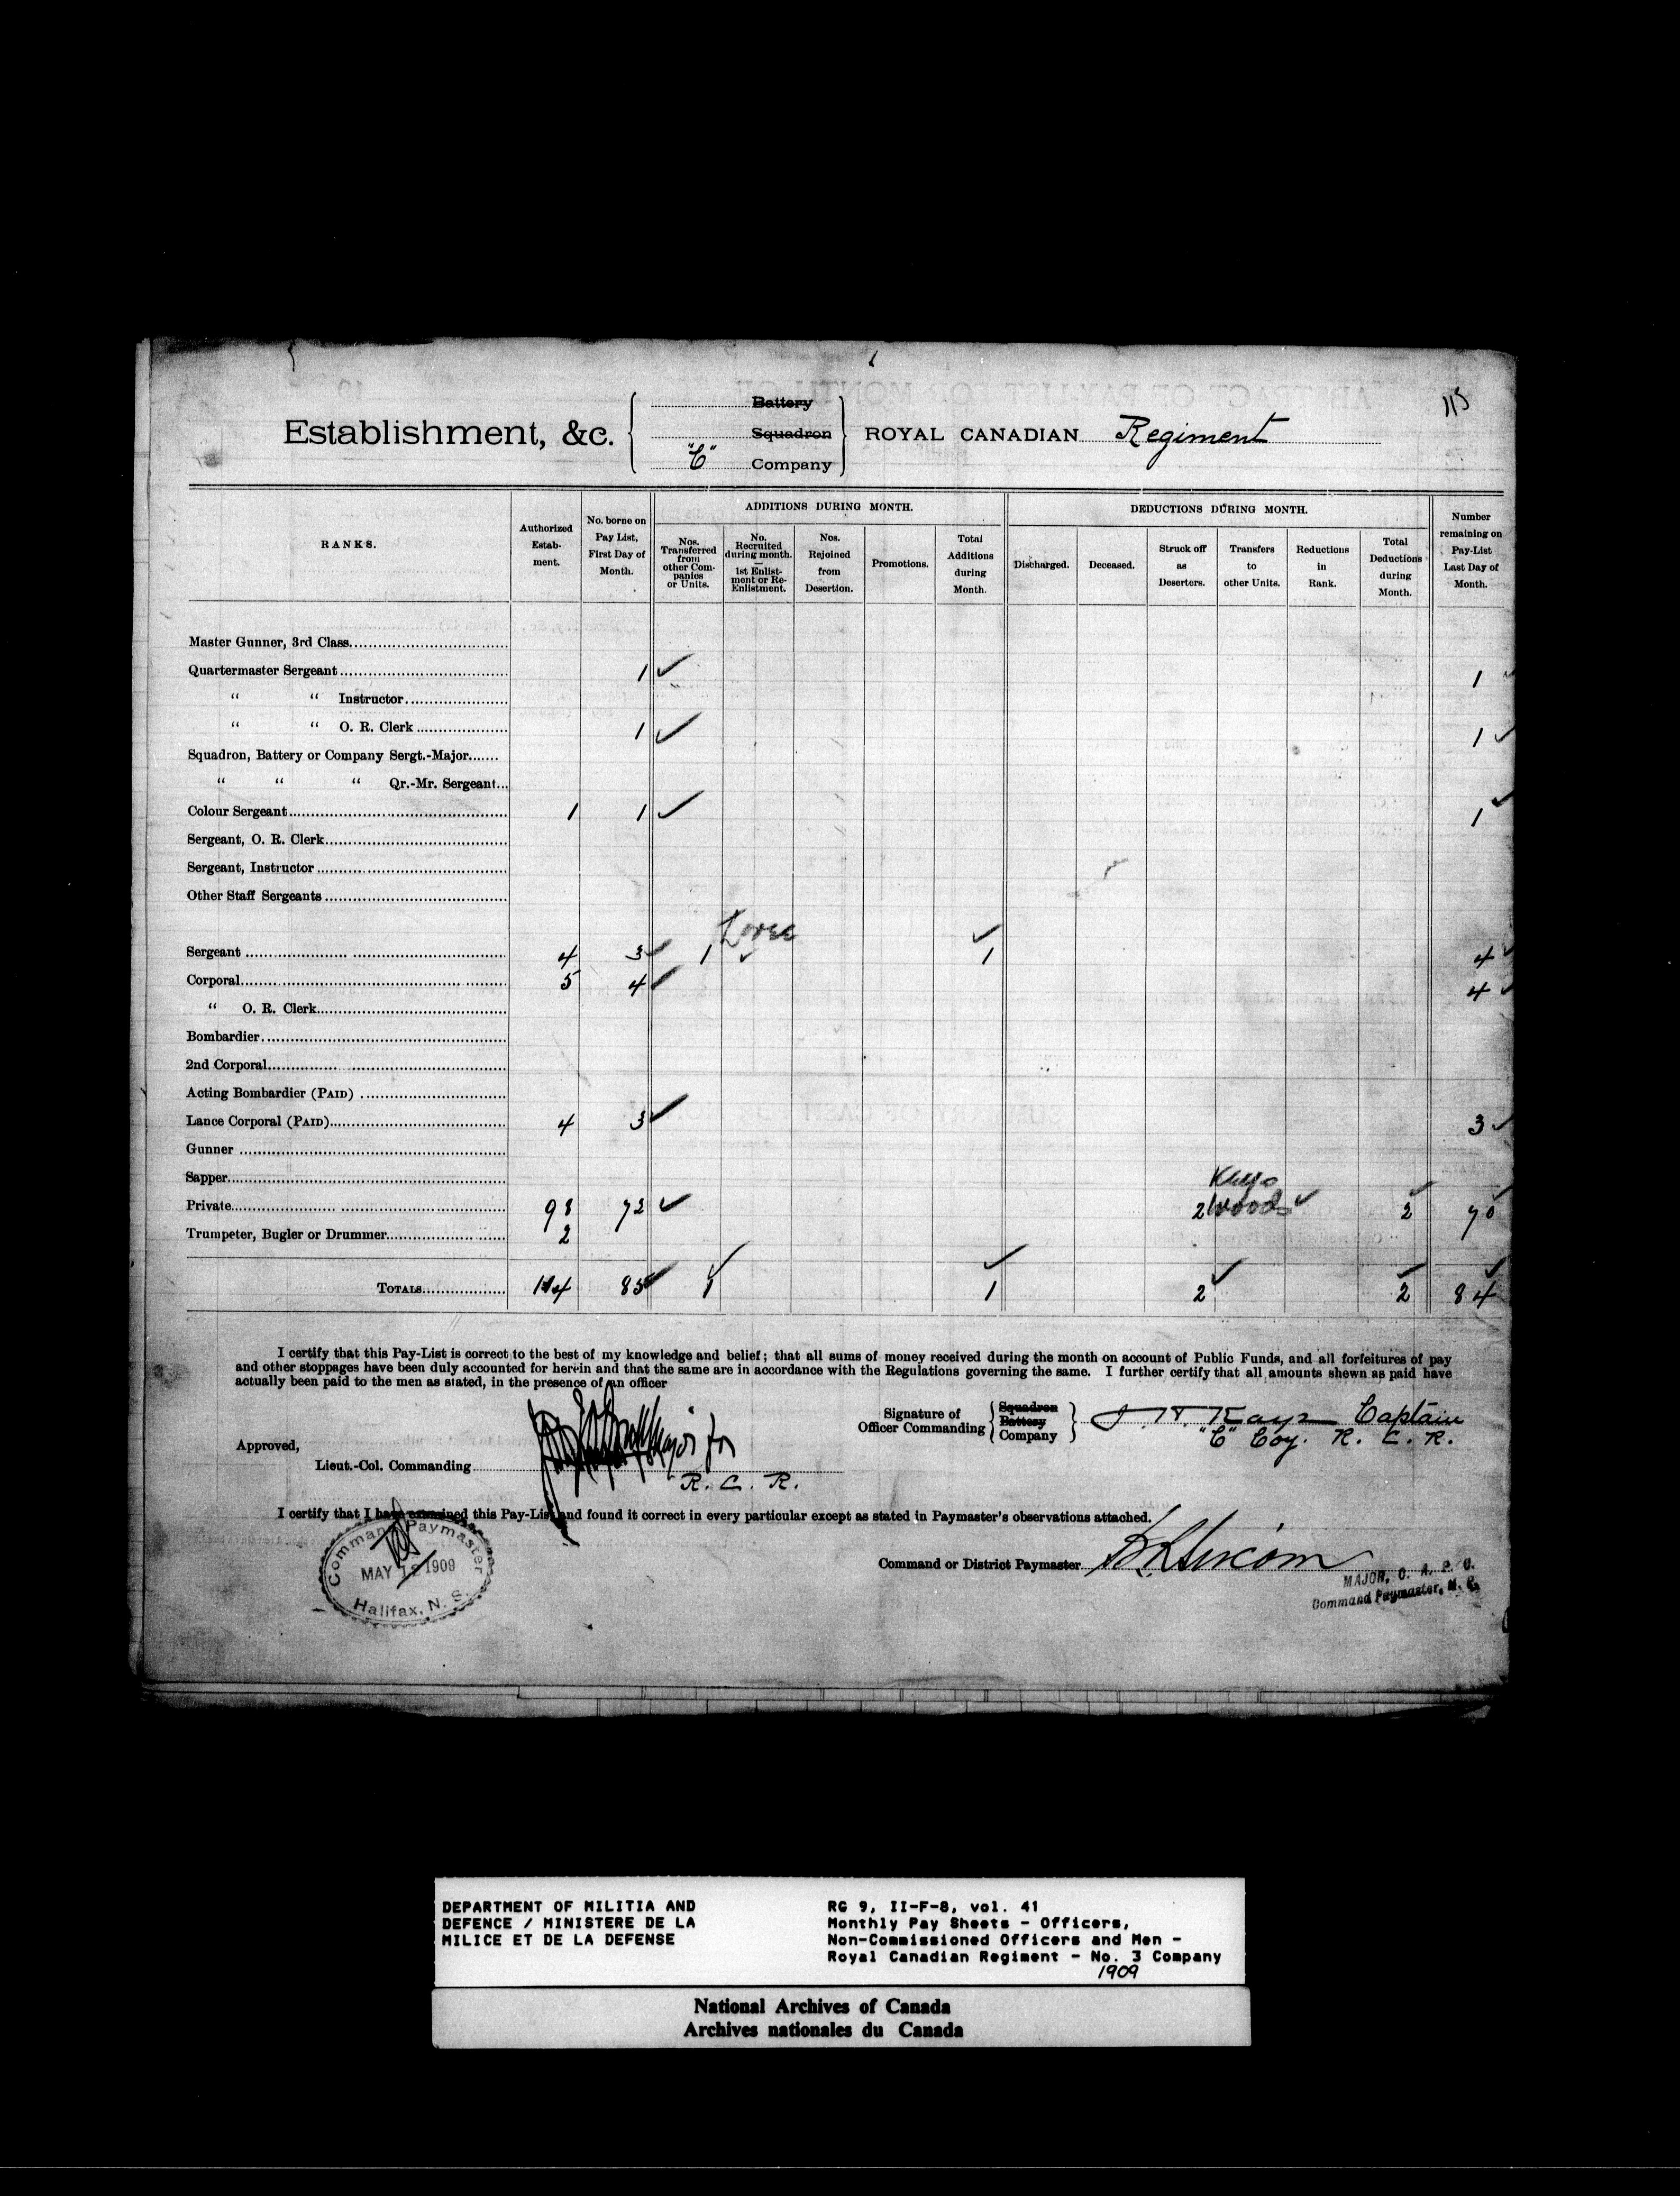 115
Establishment, &c.
Battery
Squadron
"C" Company
ROYAL CANADIAN Regiment
RANKS.
Authorized Estab-ment.
No. borne on Pay List, First Day of Month.
ADDITIONS DURING MONTH.
Nos. Transferred from other Companies or Units.
No. Recruited during month. — 1st Enlistment or Re-Enlistment.
Nos. Rejoined from Desertion.
Promotions.
Total Additions during Month.
DEDUCTIONS DURING MONTH.
Discharged.
Deceased.
Struck off as Deserters.
Transfers to other Units.
Reductions in Rank.
Total Deductions during Month.
Number remaining on Pay-List Last Day of Month.
Master Gunner, 3rd Class
Quartermaster Sergeant 1 ✓ 1
" " Instructor
" " O. R. Clerk 1 ✓ 1 ✓
Squadron, Battery or Company Sergt.-Major
" " " Qr.-Mr. Sergeant
Colour Sergeant 1 1 ✓ 1 ✓
Sergeant, O. R. Clerk
Sergeant, Instructor
Other Staff Sergeants
Sergeant 4 3 ✓ 1 ✓ 1 ✓ 4 ✓
Corporal 5 4 ✓ 4 ✓
" O. R. Clerk
Bombardier
2nd Corporal
Acting Bombardier (PAID)
Lance Corporal (PAID) 4 3 ✓ 3 ✓
Gunner
Sapper
Private 98 72 ✓ 2 Woods ✓ 2 ✓ 70 ✓
Trumpeter, Bugler or Drummer 2
TOTALS 114 85 ✓ 1 ✓ 1 ✓ 2 ✓ 2 ✓ 84 ✓
I certify that this Pay-List is correct to the best of my knowledge and belief; that all sums of money received during the month on account of Public Funds, and all forfeitures of pay
and other stoppages have been duly accounted for herein and that the same are in accordance with the Regulations governing the same. I further certify that all amounts shewn as paid have
actually been paid to the men as stated, in the presence of an officer
Signature of Officer Commanding
Squadron
Battery
Company
Kaye Captain
"C" Coy. R. C. R.
Approved,
Lieut.-Col. Commanding Major for
R. C. R.
I certify that I have examined this Pay-List and found it correct in every particular except as stated in Paymaster's observations attached.
Command Paymaster
MAY 12 1909
Halifax, N. S.
Command or District Paymaster
MAJOR, C. A. P. C.
Command Paymaster, M. P.
DEPARTMENT OF MILITIA AND
DEFENCE / MINISTERE DE LA
MILICE ET DE LA DEFENSE
RG 9, II-F-8, vol. 41
Monthly Pay Sheets - Officers,
Non-Commissioned Officers and Men -
Royal Canadian Regiment - No. 3 Company
1909
National Archives of Canada
Archives nationales du Canada